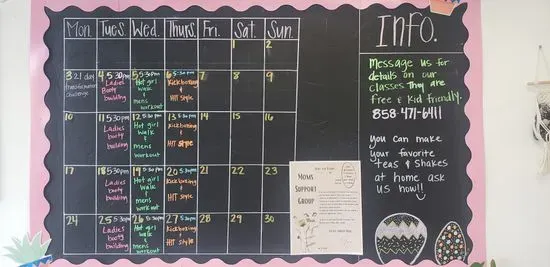 Mon. Tues. Wed. Thurs. Fri. Sat. Sun.
1 2
3 21 day
transformation
challenge
4 5:30pm
Ladies
Booty
building
5 5:30pm
Hot girl
walk
&
mens
workout
6 5:30pm
Kickboxing
&
HIT style
7 8 9
10
11 5:30pm
Ladies
booty
building
12 5:30pm
Hot girl
walk
&
mens
workout
13 5:30pm
Kickboxing
&
HIT style
14 15 16
17
18 5:30pm
Ladies
booty
building
19 5:30pm
Hot girl
walk
&
mens
workout
20 5:30pm
Kickboxing
&
HIT style
21 22 23
24
25 5:30pm
Ladies
booty
building
26 5:30pm
Hot girl
walk
&
mens
workout
27 5:30pm
Kickboxing
&
HIT style
28 29 30
MOMS
SUPPORT
GROUP
INFO.
Message us for
details on our
classes They are
free & kid friendly.
858-471-6411
you can make
your favorite
teas & shakes
at home ask
us how!!